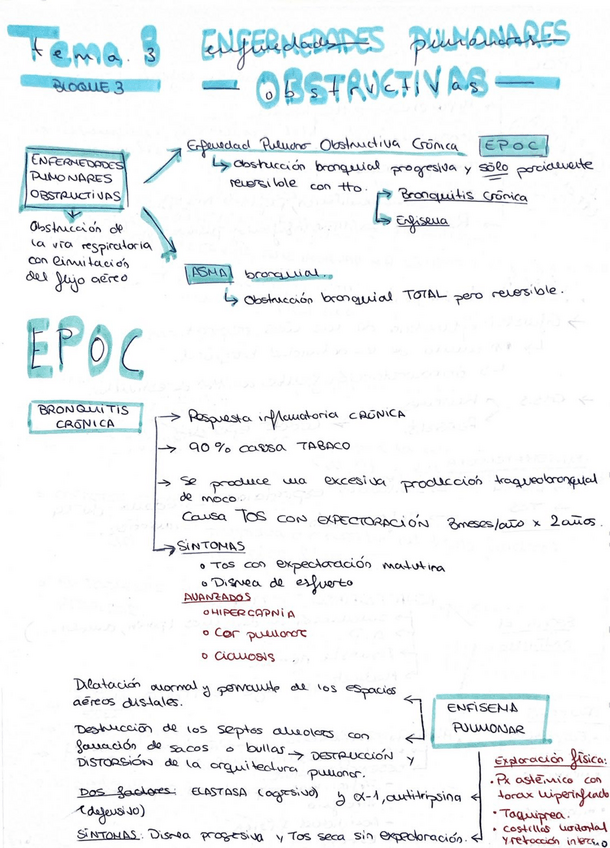 Tema. 3 ENFERMEDADES PULMONARES
enfermedades pulmonares
BLOQUE 3 OBSTRUCTIVAS
obstructivas
Enfermedad Pulmonar Obstructiva Crónica EPOC
↳ Obstrucción bronquial progresiva y sólo parcialmente
reversible con tto.
↳ Bronquitis crónica
↳ Enfisema
ENFERMEDADES
PULMONARES
OBSTRUCTIVAS
Obstrucción de
la vía respiratoria
con limitación
del flujo aéreo
ASMA bronquial.
↳ Obstrucción bronquial TOTAL pero reversible.
EPOC
BRONQUITIS
CRÓNICA
→ Respuesta inflamatoria CRÓNICA
→ 90% causa TABACO
→ Se produce una excesiva producción traqueobronquial
de moco.
Causa TOS CON EXPECTORACIÓN 3meses/año x 2años.
→ SÍNTOMAS
o Tos con expectoración matutina
o Disnea de esfuerzo
AVANZADOS
o HIPERCAPNIA
o Cor pulmonar
o Cianosis
Dilatación anormal y permanente de los espacios
aéreos distales.
Destrucción de los septos alveolares con
formación de sacos o bullas → DESTRUCCIÓN Y
DISTORSIÓN de la arquitectura pulmonar.
Dos factores: ELASTASA (agresivo) y α-1, antitripsina
(defensivo)
SÍNTOMAS: Disnea progresiva y Tos seca sin expectoración.
ENFISEMA
PULMONAR
Exploración física:
• Px asténico con
torax hiperinflado
• Taquipnea.
• costillas horizontal
y retracción